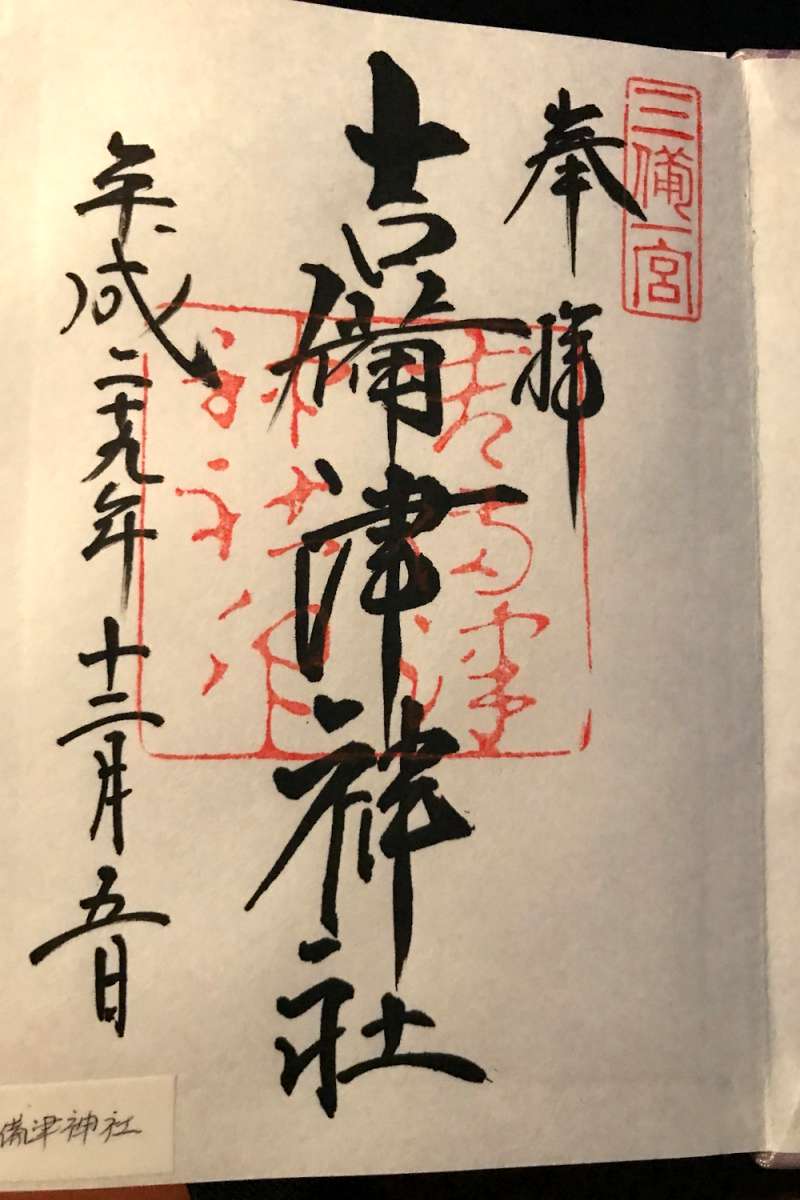 三備一宮
奉拝
吉備津神社
平成二十九年十二月五日
備津神社